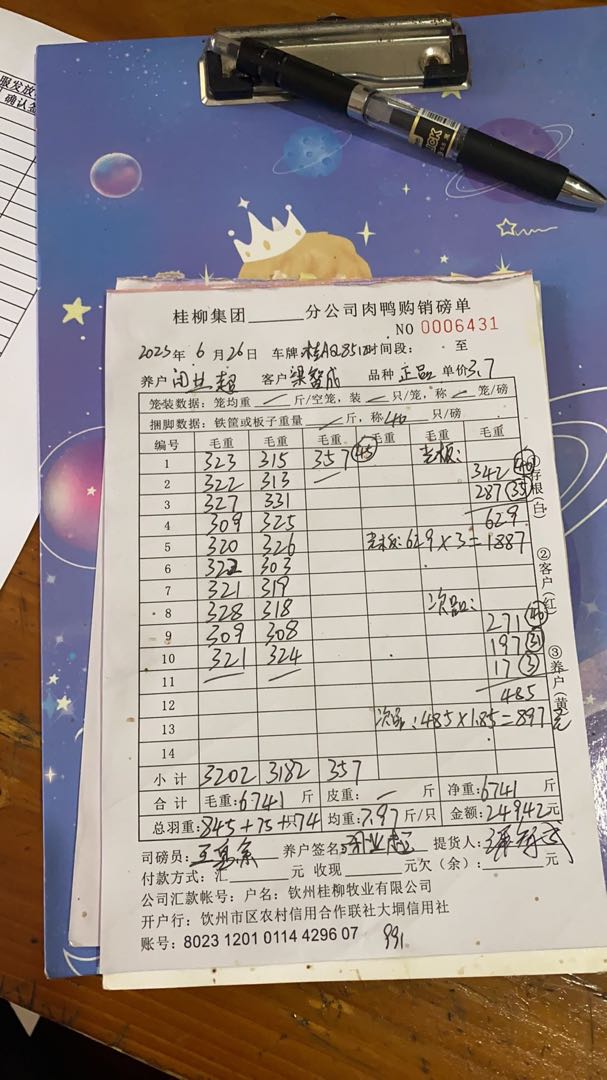 确认签
桂柳集团______分公司肉鸭购销磅单
NO 0006431
2025年 6月26日 车牌: 时间段: 至
养户 客户 梁智成 品种 正品 单价3.7
笼装数据: 笼均重 — 斤/空笼, 装 — 只/笼, 称 — 笼/磅
捆脚数据: 铁筐或板子重量 — 斤, 称40只/磅
编号 毛重 毛重 毛重 毛重 毛重 毛重
1 323 315 357(45) 老板:
2 322 313 — 342(40)
3 327 331 287(35)
4 309 325 629
5 320 326 老板:629×3=1887
6 322 303
7 321 319
8 328 318 次品: 271(40)
9 309 308 197(31)
10 321 324 17(3)
11 — — 485
12
13 次品:485×1.85=897元
14
小计 3202 3182 357
合计 毛重:6741斤 皮重:—斤 净重:6741斤
总羽重:845+75+74 均重:7.97斤/只 金额:24942元
司磅员: 养户签名: 提货人:
付款方式:汇______元 收现______元欠(余):______元
公司汇款帐号: 户名: 钦州桂柳牧业有限公司
开户行: 钦州市区农村信用合作联社大垌信用社
账号: 8023 1201 0114 4296 07
991
①存根(白)
②客户(红)
③养户(黄)